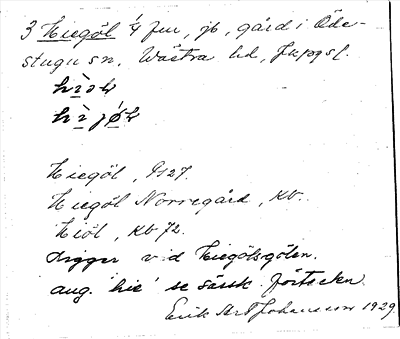 3 Hiegöl 1/4 fm, jb, gård i Öde-
stugu sn, Västra hd, Jkpgs l.
Hiegöl, G127.
Hiegöl Norregård, Kb.
Hiöl, Kb 72.
Ligger vid Hiegölsgölen.
ang. 'hie' se särsk. förteckn.
Erik Johansson 1929.